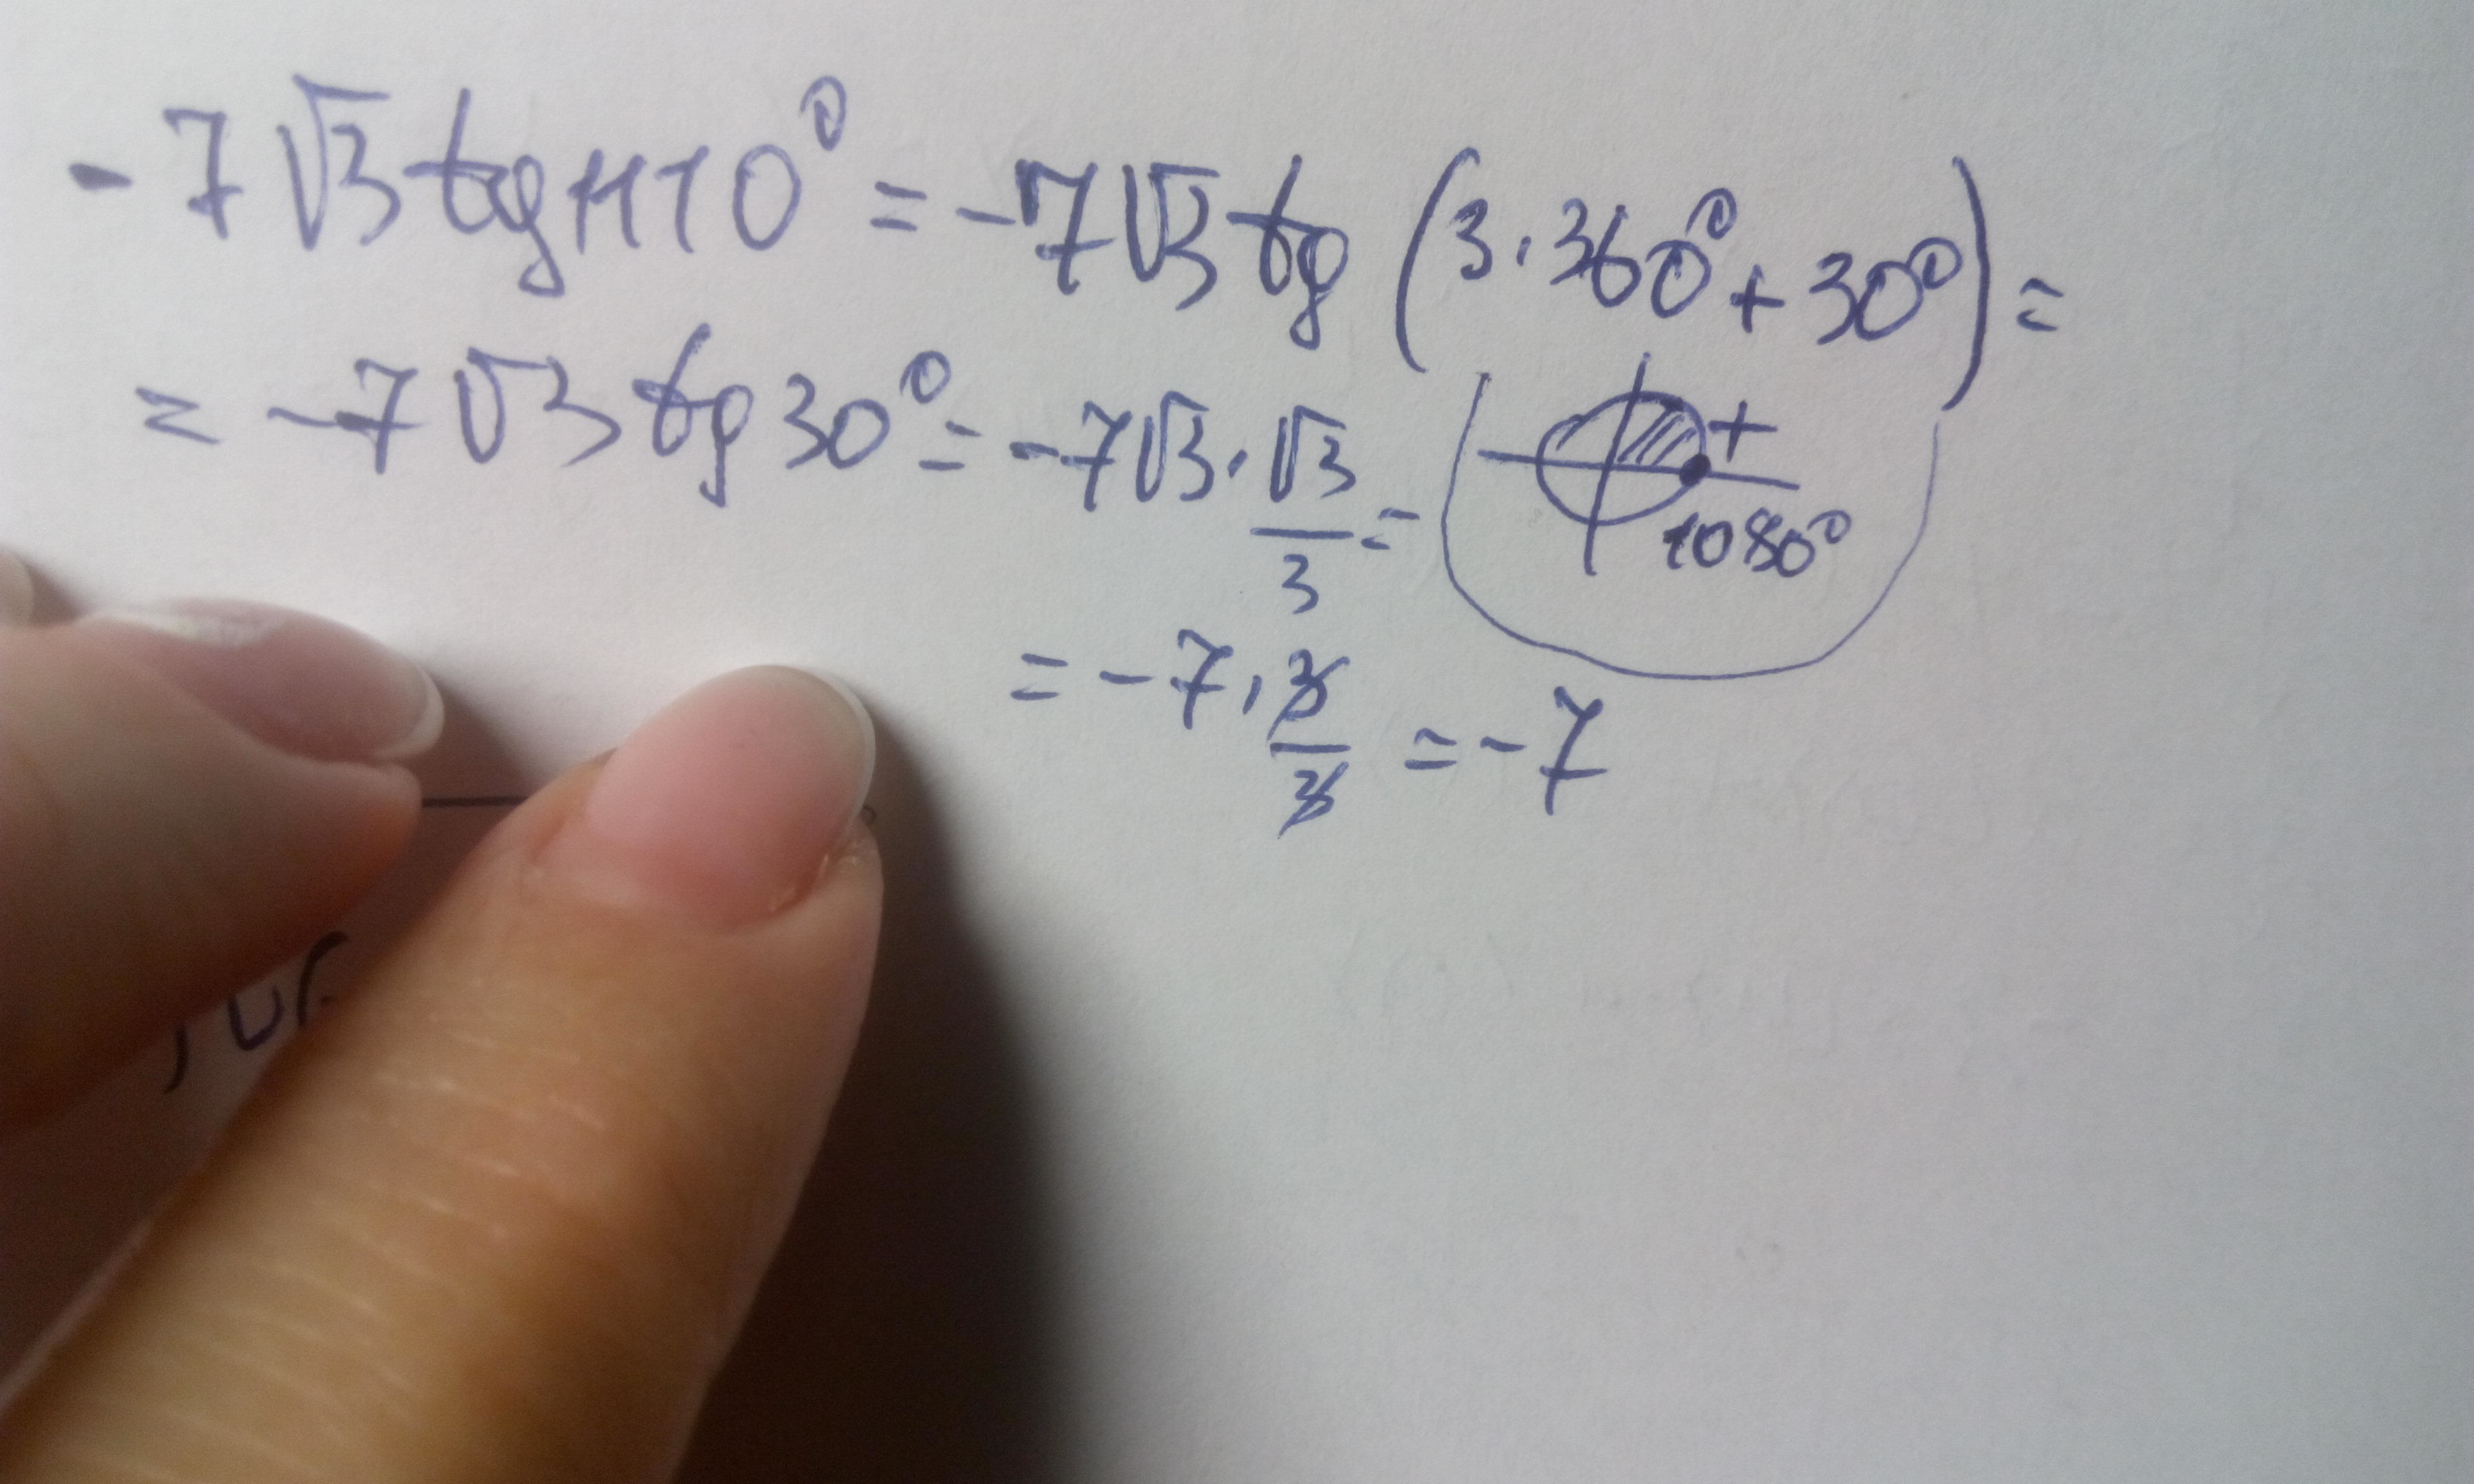 -7√3 tg 1110° = -7√3 tg (3·360° + 30°) =
= -7√3 tg 30° = -7√3 · √3/3 =
+
1080°
= -7 · 3/3 = -7